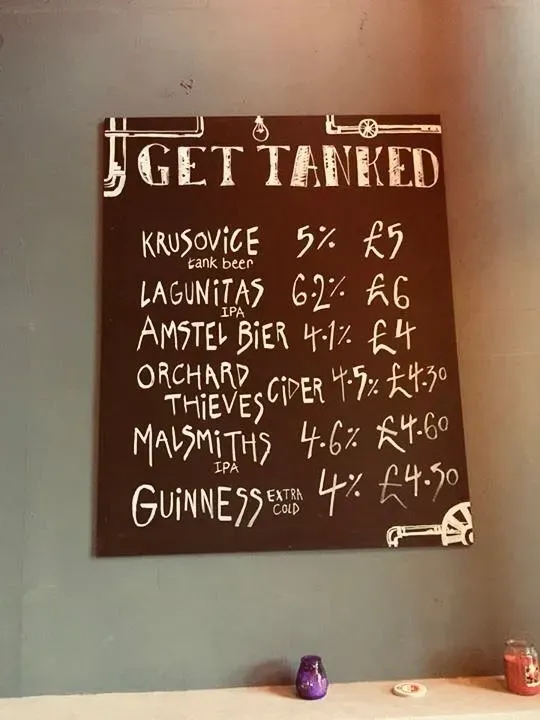 GET TANKED
KRUSOVICE 5% £5
tank beer
LAGUNITAS 6.2% £6
IPA
AMSTEL BIER 4.1% £4
ORCHARD
THIEVES CIDER 4.5% £4.30
MALSMITHS 4.6% £4.60
IPA
GUINNESS EXTRA COLD 4% £4.50